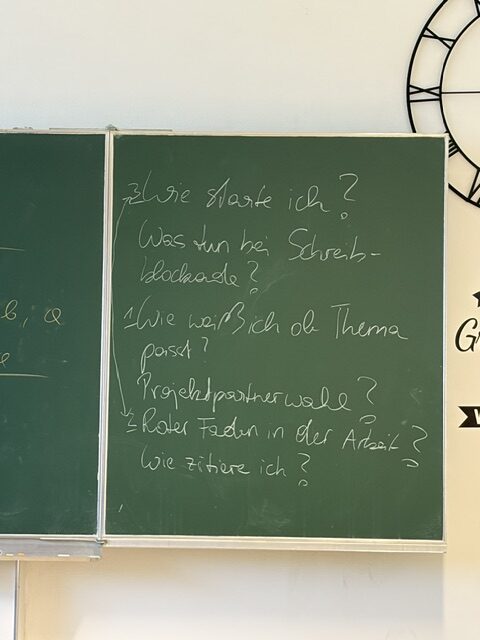 b, a
3. Wie starte ich?
Was tun bei Schreib-
blockade?
1. Wie weiß ich ob Thema
passt?
Projektpartnerwahl?
2. Roter Faden in der Arbeit?
Wie zitiere ich?
G